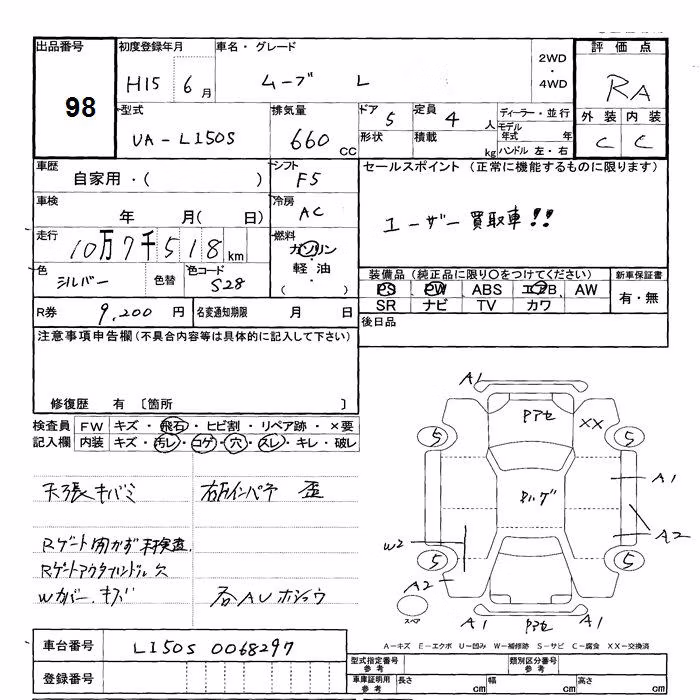 出品番号 初度登録年月 車名・グレード 2WD ・ 4WD 評価点
98 H15 6月 ムーブ L RA
型式 排気量 ドア 5 定員 4人 ディーラー・並行 外装 内装
UA-L150S 660CC 形状 積載 kg モデル年式 年 C C
ハンドル 左・右
車歴 シフト セールスポイント (正常に機能するものに限ります)
自家用・( ) F5
車検 冷房 ユーザー買取車!!
年 月( 日) AC
走行 燃料
10万7千518km ガソリン
色 色替 色コード 軽油 装備品 (純正品に限り〇をつけてください) 新車保証書
シルバー S28 ( ) PS PW ABS エアB AW 有・無
SR ナビ TV カワ
R券 9,200円 名変通知期限 月 日 後日品
注意事項申告欄 (不具合内容等は具体的に記入して下さい)
修復歴 有 [箇所 ]
検査員 FW キズ・飛石・ヒビ割・リペア跡・×要
記入欄 内装 キズ・汚レ・コゲ・穴・スレ・キレ・破レ
天張キバミ 右Fインパネ 歪
Rゲート開かず未検査
Rゲートアウタハンドル欠
Wカバー、キズ 社AU ホショウ
A1
Pアセ XX
5 5
ヤハゲ A1
W2 A2
5 5
A2
スペア A1 Pアセ A1
A-キズ E-エクボ U-凹み W-補修跡 S-サビ C-腐食 XX-交換済
車台番号 L150S 0068297 型式指定番号 参考 類別区分番号 参考
登録番号 車庫証明用 参考 長さ cm 幅 cm 高さ cm